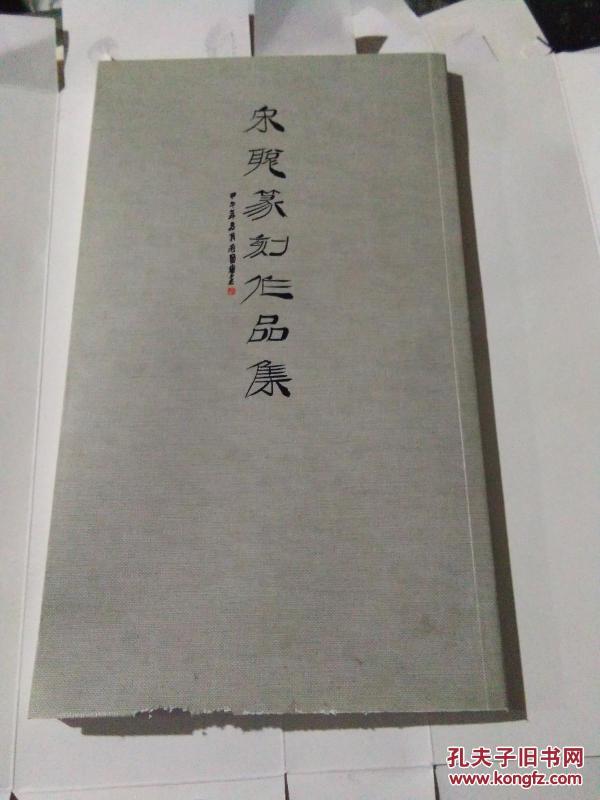 宋聪篆刻作品集
甲午年
孔夫子旧书网
www.kongfz.com